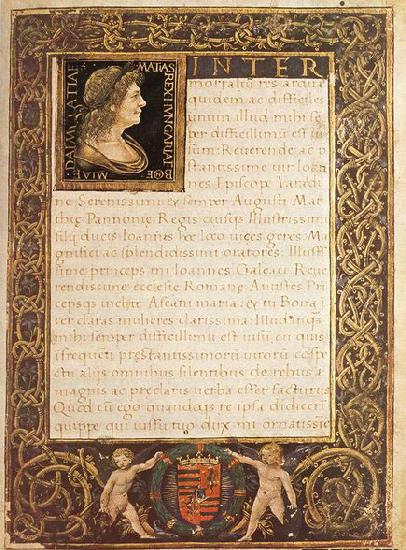 MATIAS REX HVNGARIAE BOE
MIAE DALMATIAE
INTER
mortalis res ardua
quidem ac difficiles
unum illud mihi se
per difficillimum est
sum: Reverende ac p
stantissime vir Ioan
nes Episcope Varadi
ne Serenissimi & semper Augusti Mat
thie Pannonie Regis eiusq Illustrissimi
filij ducis Ioannis hoc loco vices geres: Ma
gnifici ac splendidissimi oratores: Illustr
ssime princeps mi Ioannes Galeaci Reve
rendissime ecclesie Romane Antistes Pri
cepsq inclyte Ascani maria: & tu Bona i
ter claras mulieres clarissima: Illud inq
mihi semper difficillimum est visu, cu quis
i frequeti prestantissimoru virorum cospe
ctu alijs omnibus silentibus de rebus
magnis ac preclaris verba esset facturus
Quod cu ego quandoq re ipsa didiceri
quippe qui iussu tuo dux mi ornatissie